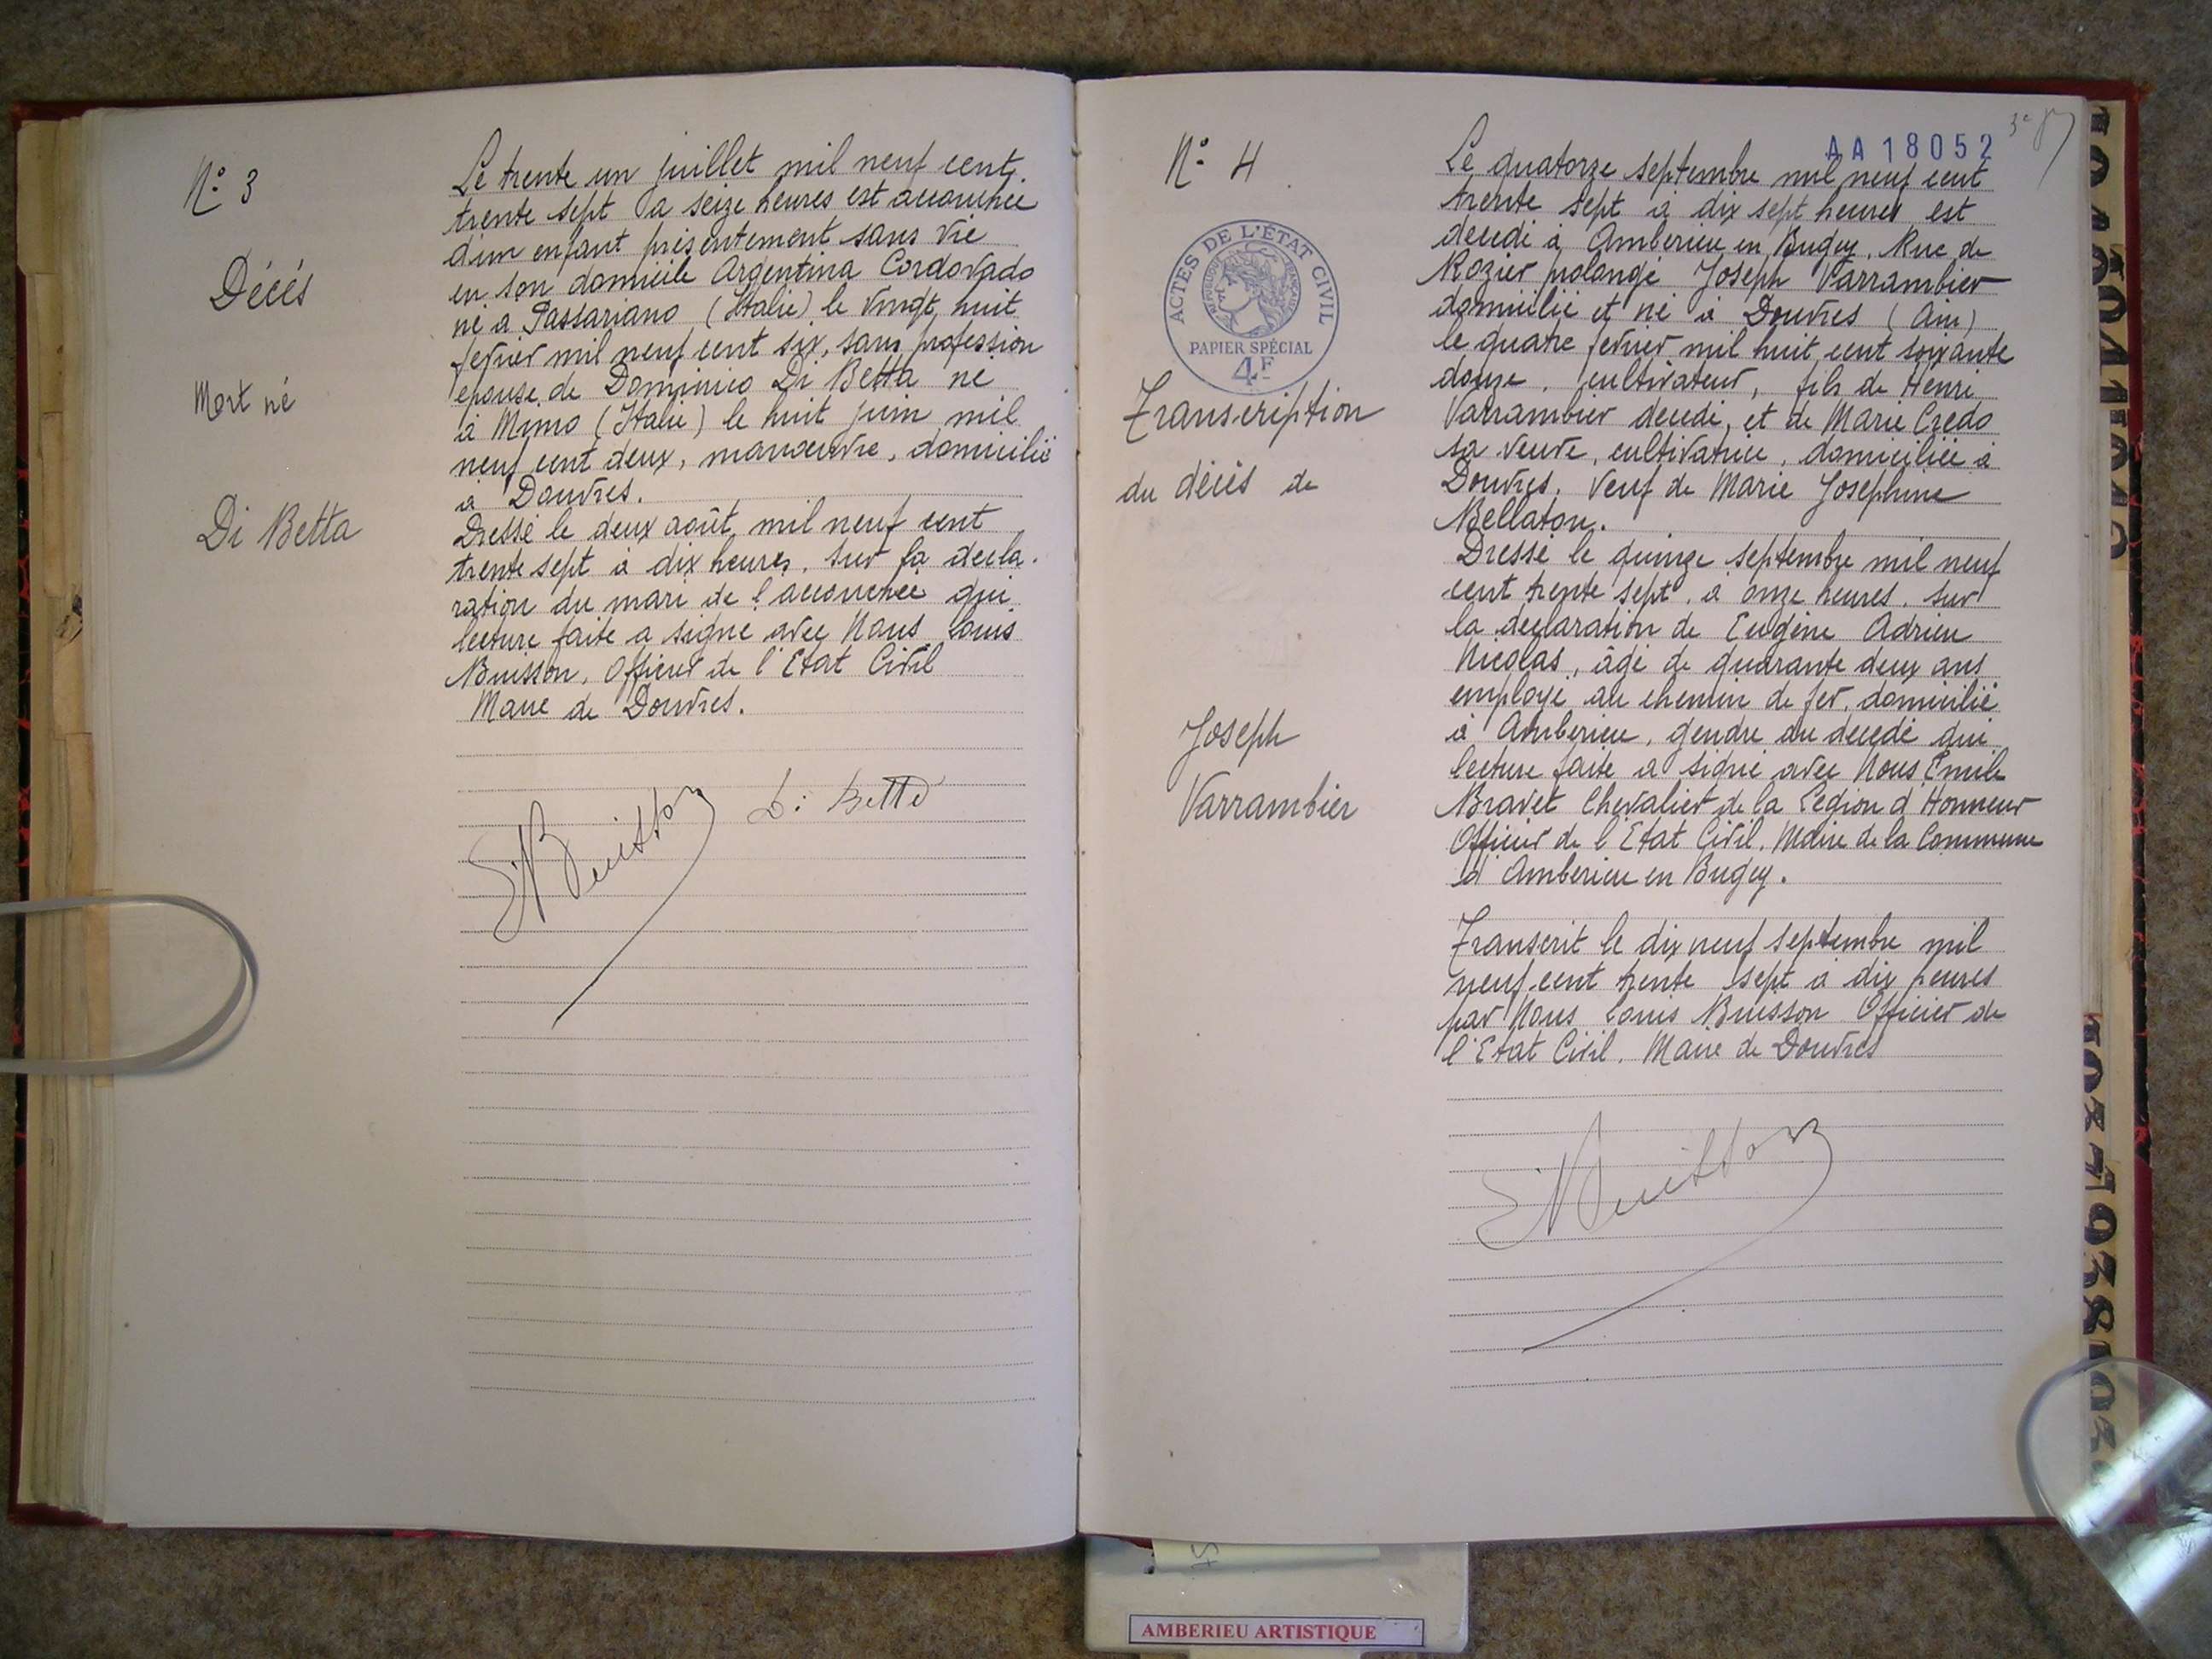 N° 3
Décès
Mort né
Di Betta
Le trente un juillet mil neuf cent
trente sept à seize heures est accouchée
d'un enfant présentement sans vie
en son domicile Argentina Cordovado
né à Passariano (Italie) le vingt huit
fevrier mil neuf cent six, sans profession
epouse de Dominico Di Betta né
à Mimo (Italie) le huit juin mil
neuf cent deux, manoeuvre, domicilié
à Douvres.
Dressé le deux août mil neuf cent
trente sept à dix heures, sur la decla-
ration du mari de l'accouchée qui
lecture faite a signé avec Nous Louis
Buisson, Officier de l'Etat Civil
Maire de Douvres.
Di Betta
Buisson
N° 4
ACTES DE L'ÉTAT CIVIL
RÉPUBLIQUE FRANÇAISE
PAPIER SPÉCIAL
4F
Transcription
du décès de
Joseph
Varrambier
AA 18052
Le quatorze septembre mil neuf cent
trente sept à dix sept heures est
decedé à Amberieu en Bugey, Rue de
Rozier prolongé Joseph Varrambier
domicilié et né à Douvres (Ain)
le quatre fevrier mil huit cent soixante
douze, cultivateur, fils de Henri
Varrambier decedé, et de Marie Credo
sa veuve, cultivatrice, domiciliée à
Douvres. Veuf de Marie Josephine
Bellaton.
Dressé le quinze septembre mil neuf
cent trente sept, à onze heures, sur
la declaration de Eugène Adrien
Nicolas, âgé de quarante deux ans
employé au chemin de fer, domicilié
à Amberieu, gendre du decedé qui
lecture faite a signé avec Nous Emile
Bravet Chevalier de la Legion d'Honneur
Officier de l'Etat Civil, Maire de la Commune
d'Amberieu en Bugey.
Transcrit le dix neuf septembre mil
neuf cent trente sept à dix heures
par Nous Louis Buisson Officier de
l'Etat Civil, Maire de Douvres
Buisson
AMBERIEU ARTISTIQUE